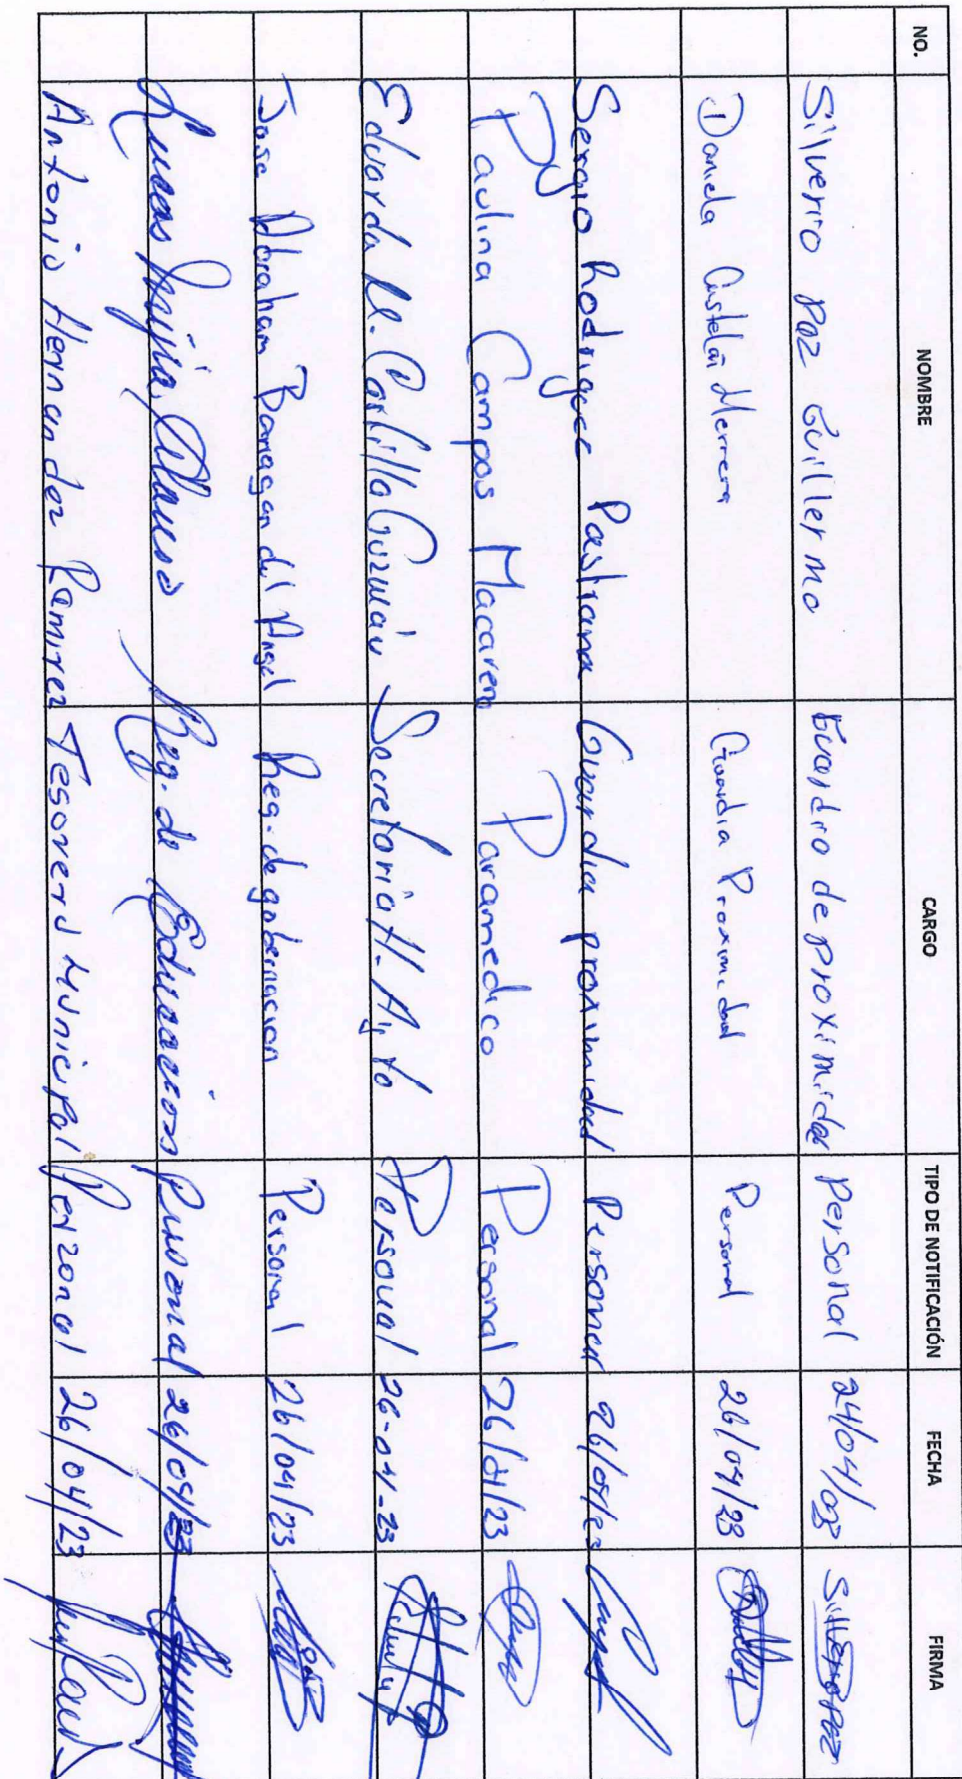 NO. NOMBRE CARGO TIPO DE NOTIFICACIÓN FECHA FIRMA
Silverio Paz Guillermo Guardia de proximidad Personal 24/04/023 Silverio Paz
Daniela Castelán Herrera Guardia Proximidad Personal 26/04/23
Sergio Rodriguez Pastrana Guardia proximidad Personal 26/04/23
Paulina Campos Macareno Paramedico Personal 26/04/23
Eduarda Castillo Guzmán Secretaria H. Ayto Personal 26-04-23
Jose Abraham Barragan del Angel Reg. de gobernacion Personal 26/04/23
Lucas Mejía Reg. de Educacion Personal 26/04/23
Antonio Hernandez Ramirez Tesorero Municipal Perzonal 26/04/23